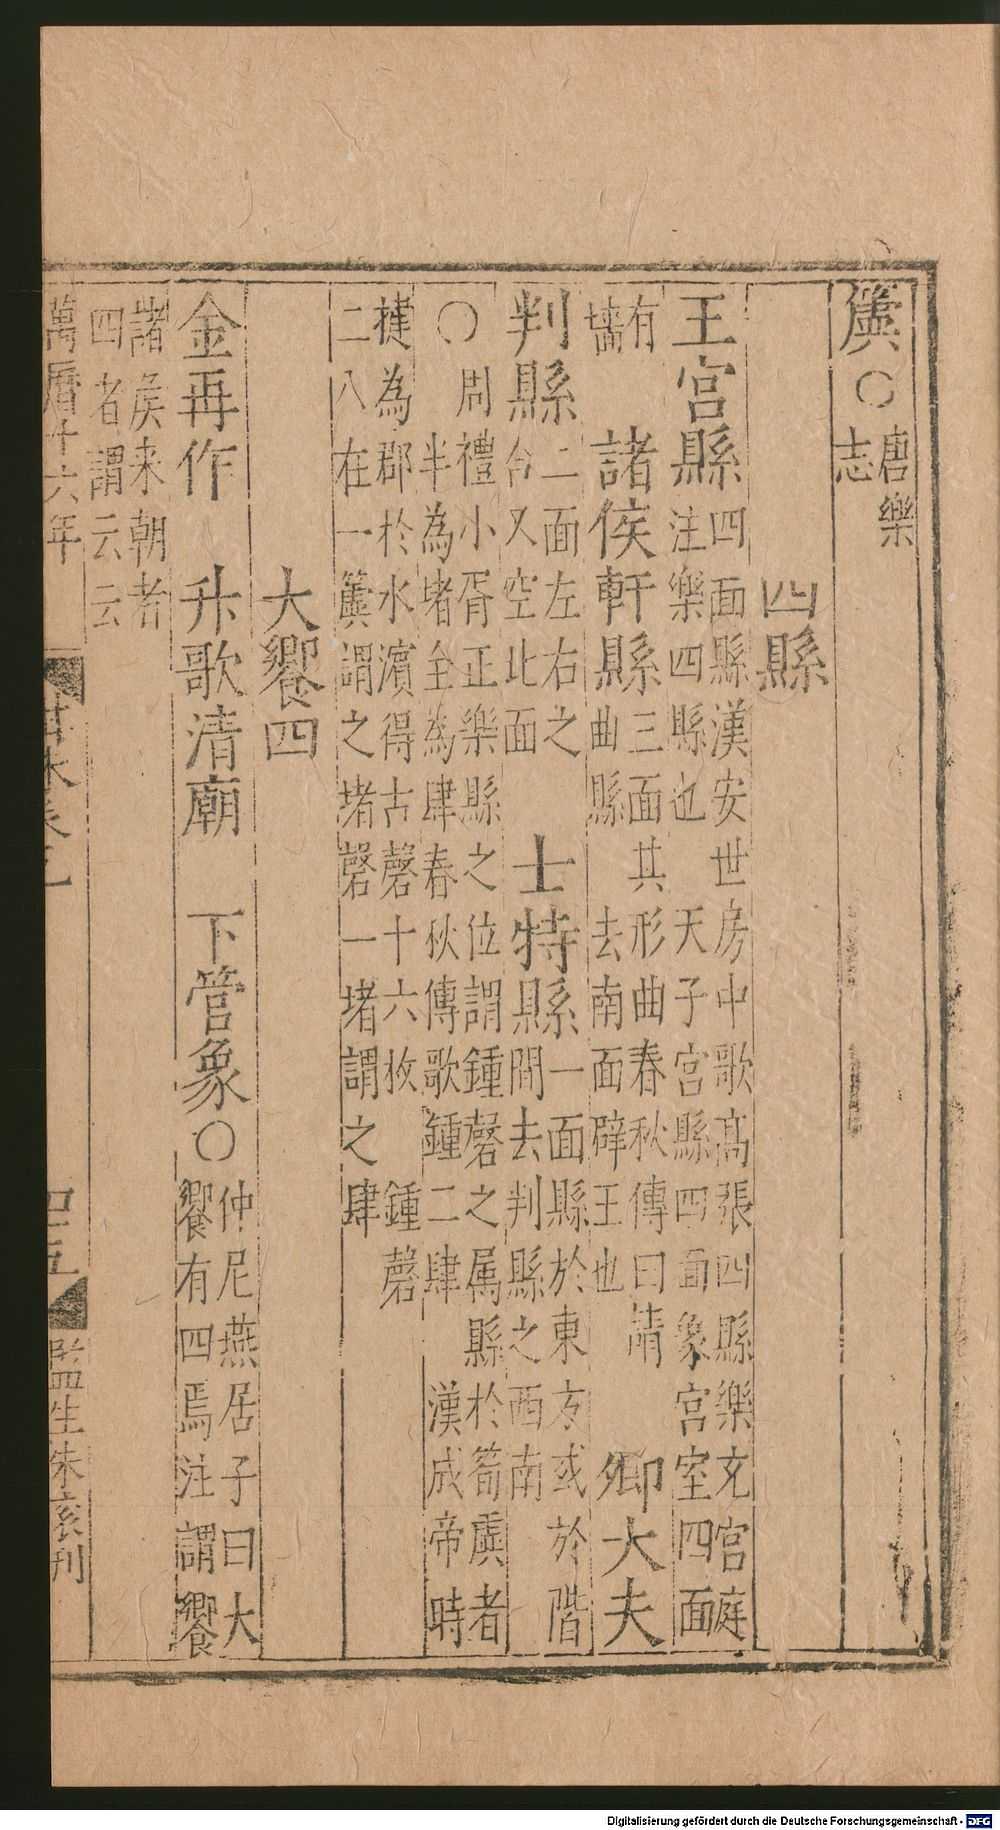 簴○唐樂
志
四縣
王宮縣四面縣漢安世房中歌高張四縣樂充宮庭
注樂四縣也 天子宮縣四面象宮室四面
有
牆
諸侯軒縣三面其形曲春秋傳曰請
曲縣 去南面辟王也
卿大夫
判縣二面左右之
合又空北面
士特縣一面縣於東方或於階
間去判縣之西南
○周禮小胥正樂縣之位謂鍾磬之属縣於筍虡者
半為堵全為肆春秋傳歌鍾二肆 漢成帝時
揵為郡於水濱得古磬十六枚 鍾磬
二八在一簴謂之堵磬一堵謂之肆
大饗四
金再作
升歌清廟
下管象○仲尼燕居子曰大
饗有四焉注謂饗
諸侯来朝者
四者謂云云
萬曆十六年
四五
監生朱 刊
Digitalisierung gefördert durch die Deutsche Forschungsgemeinschaft - DFG